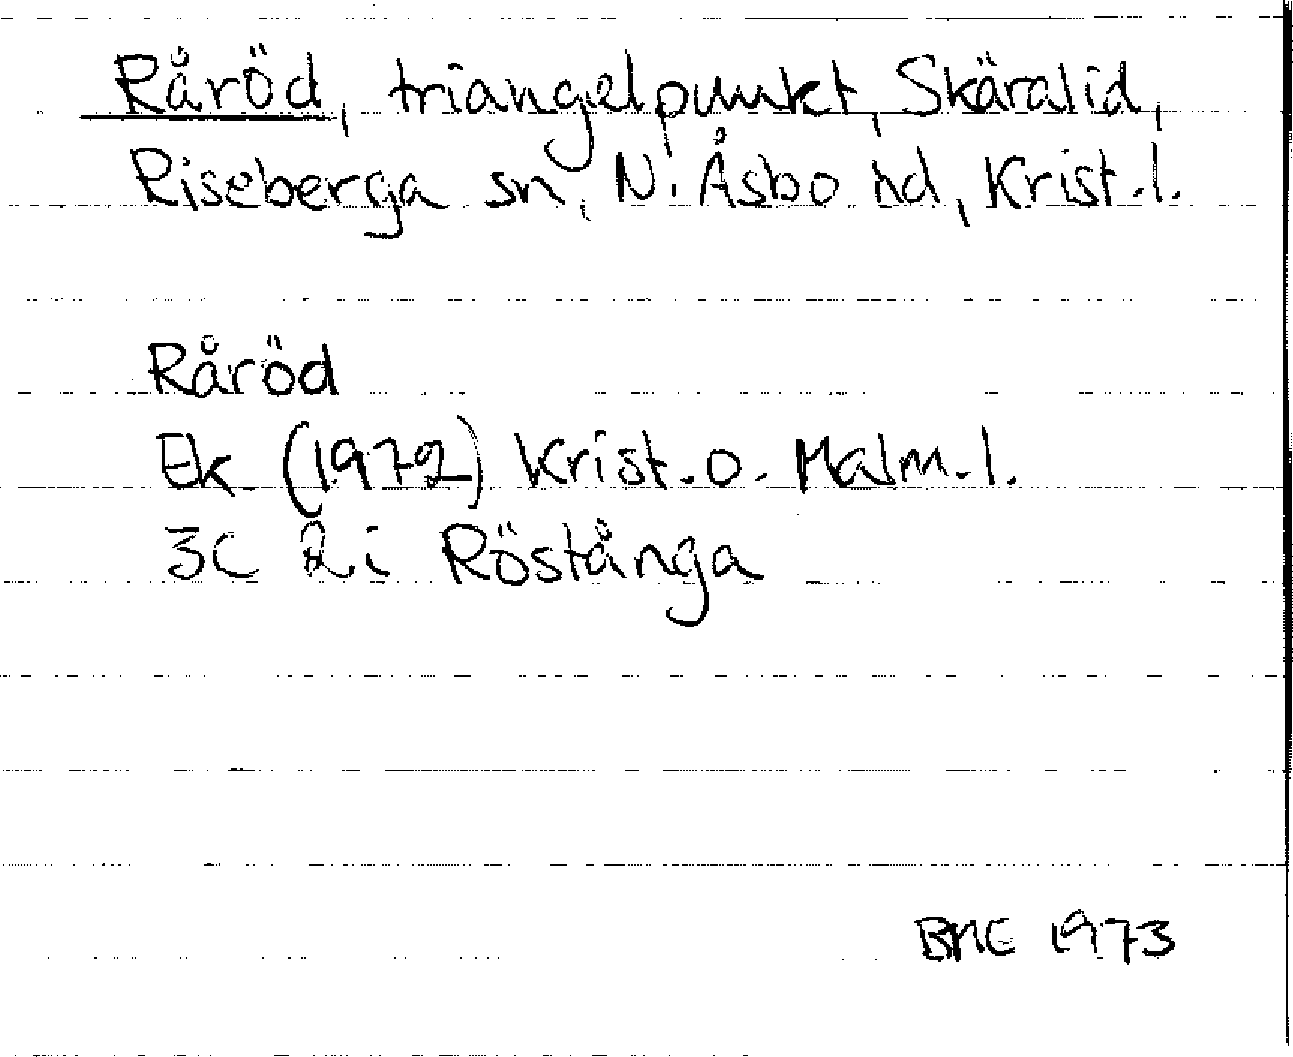 Råröd, triangelpunkt, Skäralid,
Riseberga sn, N. Åsbo hd, Krist. l.
Råröd
Ek (1972) Krist. o. Malm. l.
3C 2i Röstånga
BME 1973